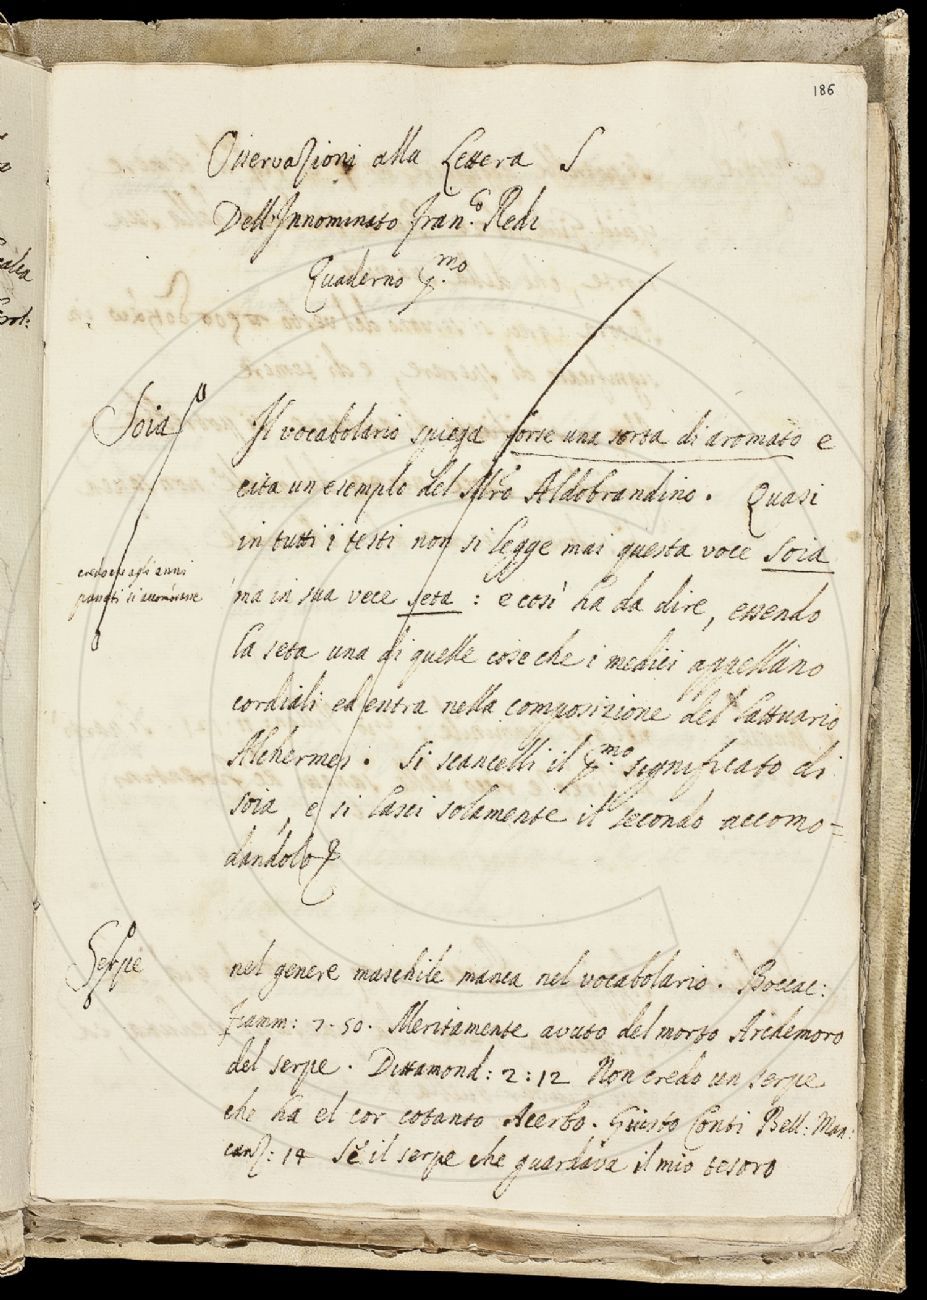 186
Osservazioni alla Lettera S
Dell'Innominato Fran.co Redi
Quaderno p.mo
Soia
Il vocabolario spiega forse una sorta di aromato e
cita un esemplo del Mro Aldobrandino. Quasi
in tutti i testi non si legge mai questa voce soia
credo che agli anni
passati si
ma in sua vece seta: e così ha da dire, essendo
la seta una di quelle cose che i medici appellano
cordiali ed entra nella composizione del lattuario
Alchermes. Si scancelli il p.mo significato di
soia, e si lasci solamente il secondo accomo=
dandolo &
Serpe
nel genere maschile manca nel vocabolario. Boccac:
Fiamm: 7.50. Meritamente avuto del morto Archemoro
del serpe. Dittamond: 2:12 Non credo un serpe
che ha el cor cotanto Acerbo. Giusto Conti Bell: Man:
canz: 14 Se il serpe che guardava il mio tesoro